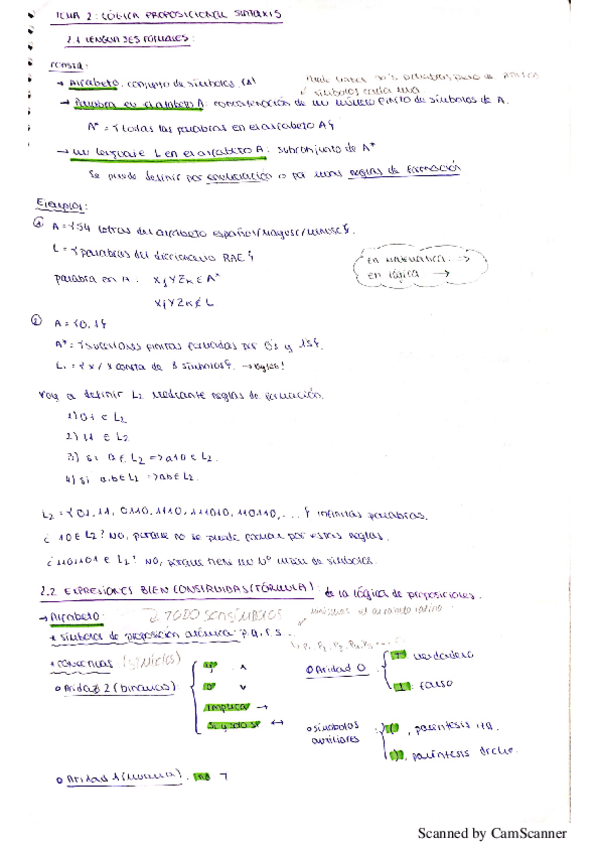 TEMA 2: LÓGICA PROPOSICIONAL SINTAXIS
2.1 LENGUAJES FORMALES:
→ Alfabeto: conjunto de símbolos (A)
símbolos cada una
→ Palabra en el alfabeto A: concatenación de un número finito de símbolos de A.
A* = {todas las palabras en el alfabeto A}
→ un lenguaje L en el alfabeto A: subconjunto de A*
Se puede definir por o por unas reglas de formación
Ejemplos:
① A = {54 letras del alfabeto español/mayusc/minusc}.
L = {palabras del diccionario RAE}
en matemática: →
en lógica →
palabra en A: XjYZK ∈ A*
XjYZK ∉ L
② A = {0,1}
A* = {sucesiones finitas formadas por 0's y 1's}.
L₁ = {x / x consta de 8 símbolos}. → bytes!
Voy a definir L₂ mediante reglas de formación.
1) 01 ∈ L₂
2) 11 ∈ L₂
3) si ∈ L₂ ⇒ 10 ∈ L₂.
4) si a,b ∈ L₂ ⇒ ab ∈ L₂.
L₂ = {01, 11, 0110, 1110, 111010, 110110, ... } infinitas palabras.
¿10 ∈ L₂? NO, porque no se puede formar por estas reglas.
¿ ∈ L₂? NO, porque tiene un nº impar de símbolos.
2.2 EXPRESIONES BIEN CONSTRUIDAS (FÓRMULA): de la lógica de proposiciones.
→ Alfabeto: TODO SON SÍMBOLOS el alfabeto latino
* símbolos de proposición atómica: p, q, r, s...
* conectivas
○ Aridad 2 (binarias)
y ∧
o ∨
implica →
si y solo si ↔
○ Aridad 0
⊤ verdadero
⊥ falso
○ símbolos auxiliares
(, paréntesis izq.
), paréntesis drcho.
○ Aridad 1 (unaria). no ¬
Scanned by CamScanner